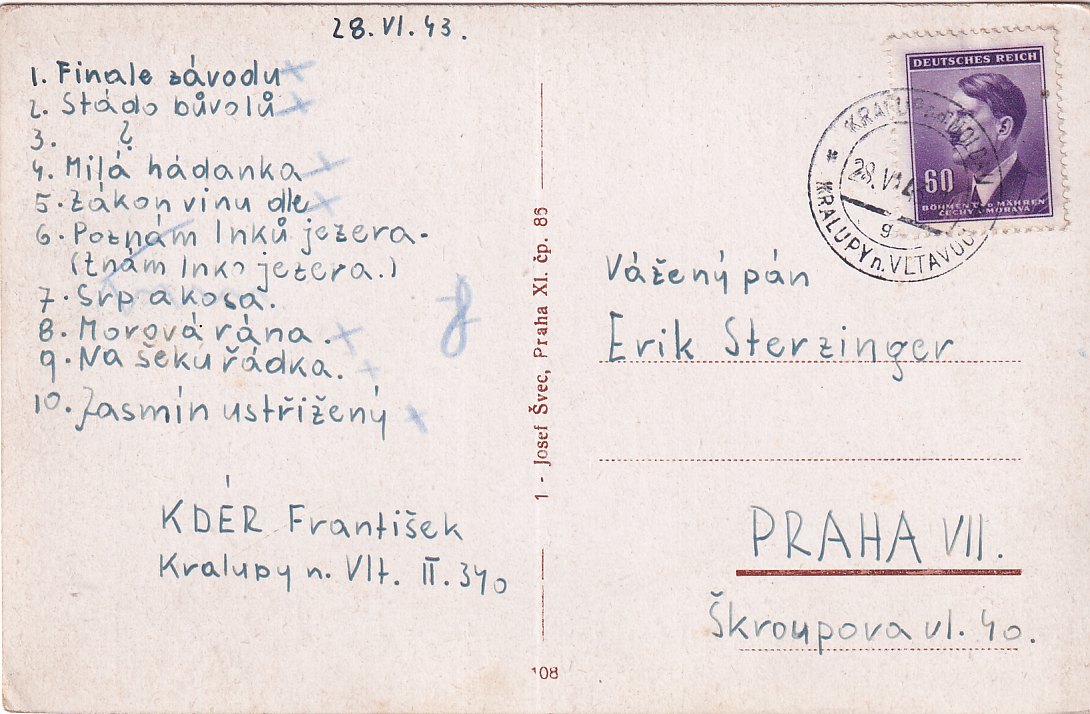 28.VI.43.
1. Finale závodu
2. Stádo bůvolů
3. ?
4. Milá hádanka
5. Zákon vinu dle
6. Poznám Inků jezera.
(znám Inko jezera.)
7. Srp a kosa.
8. Morová rána.
9. Na šeku řádka.
10. Jasmín ustřižený
KDÉR František
Kralupy n. Vlt. II. 340
1 - Josef Švec, Praha XI. čp. 85
108
DEUTSCHES REICH
60
BÖHMEN UND MÄHREN
ČECHY A MORAVA
28.VI.4
KRALUPY n. VLTAVOU
Vážený pán
Erik Sterzinger
PRAHA VII.
Škroupova ul. 40.